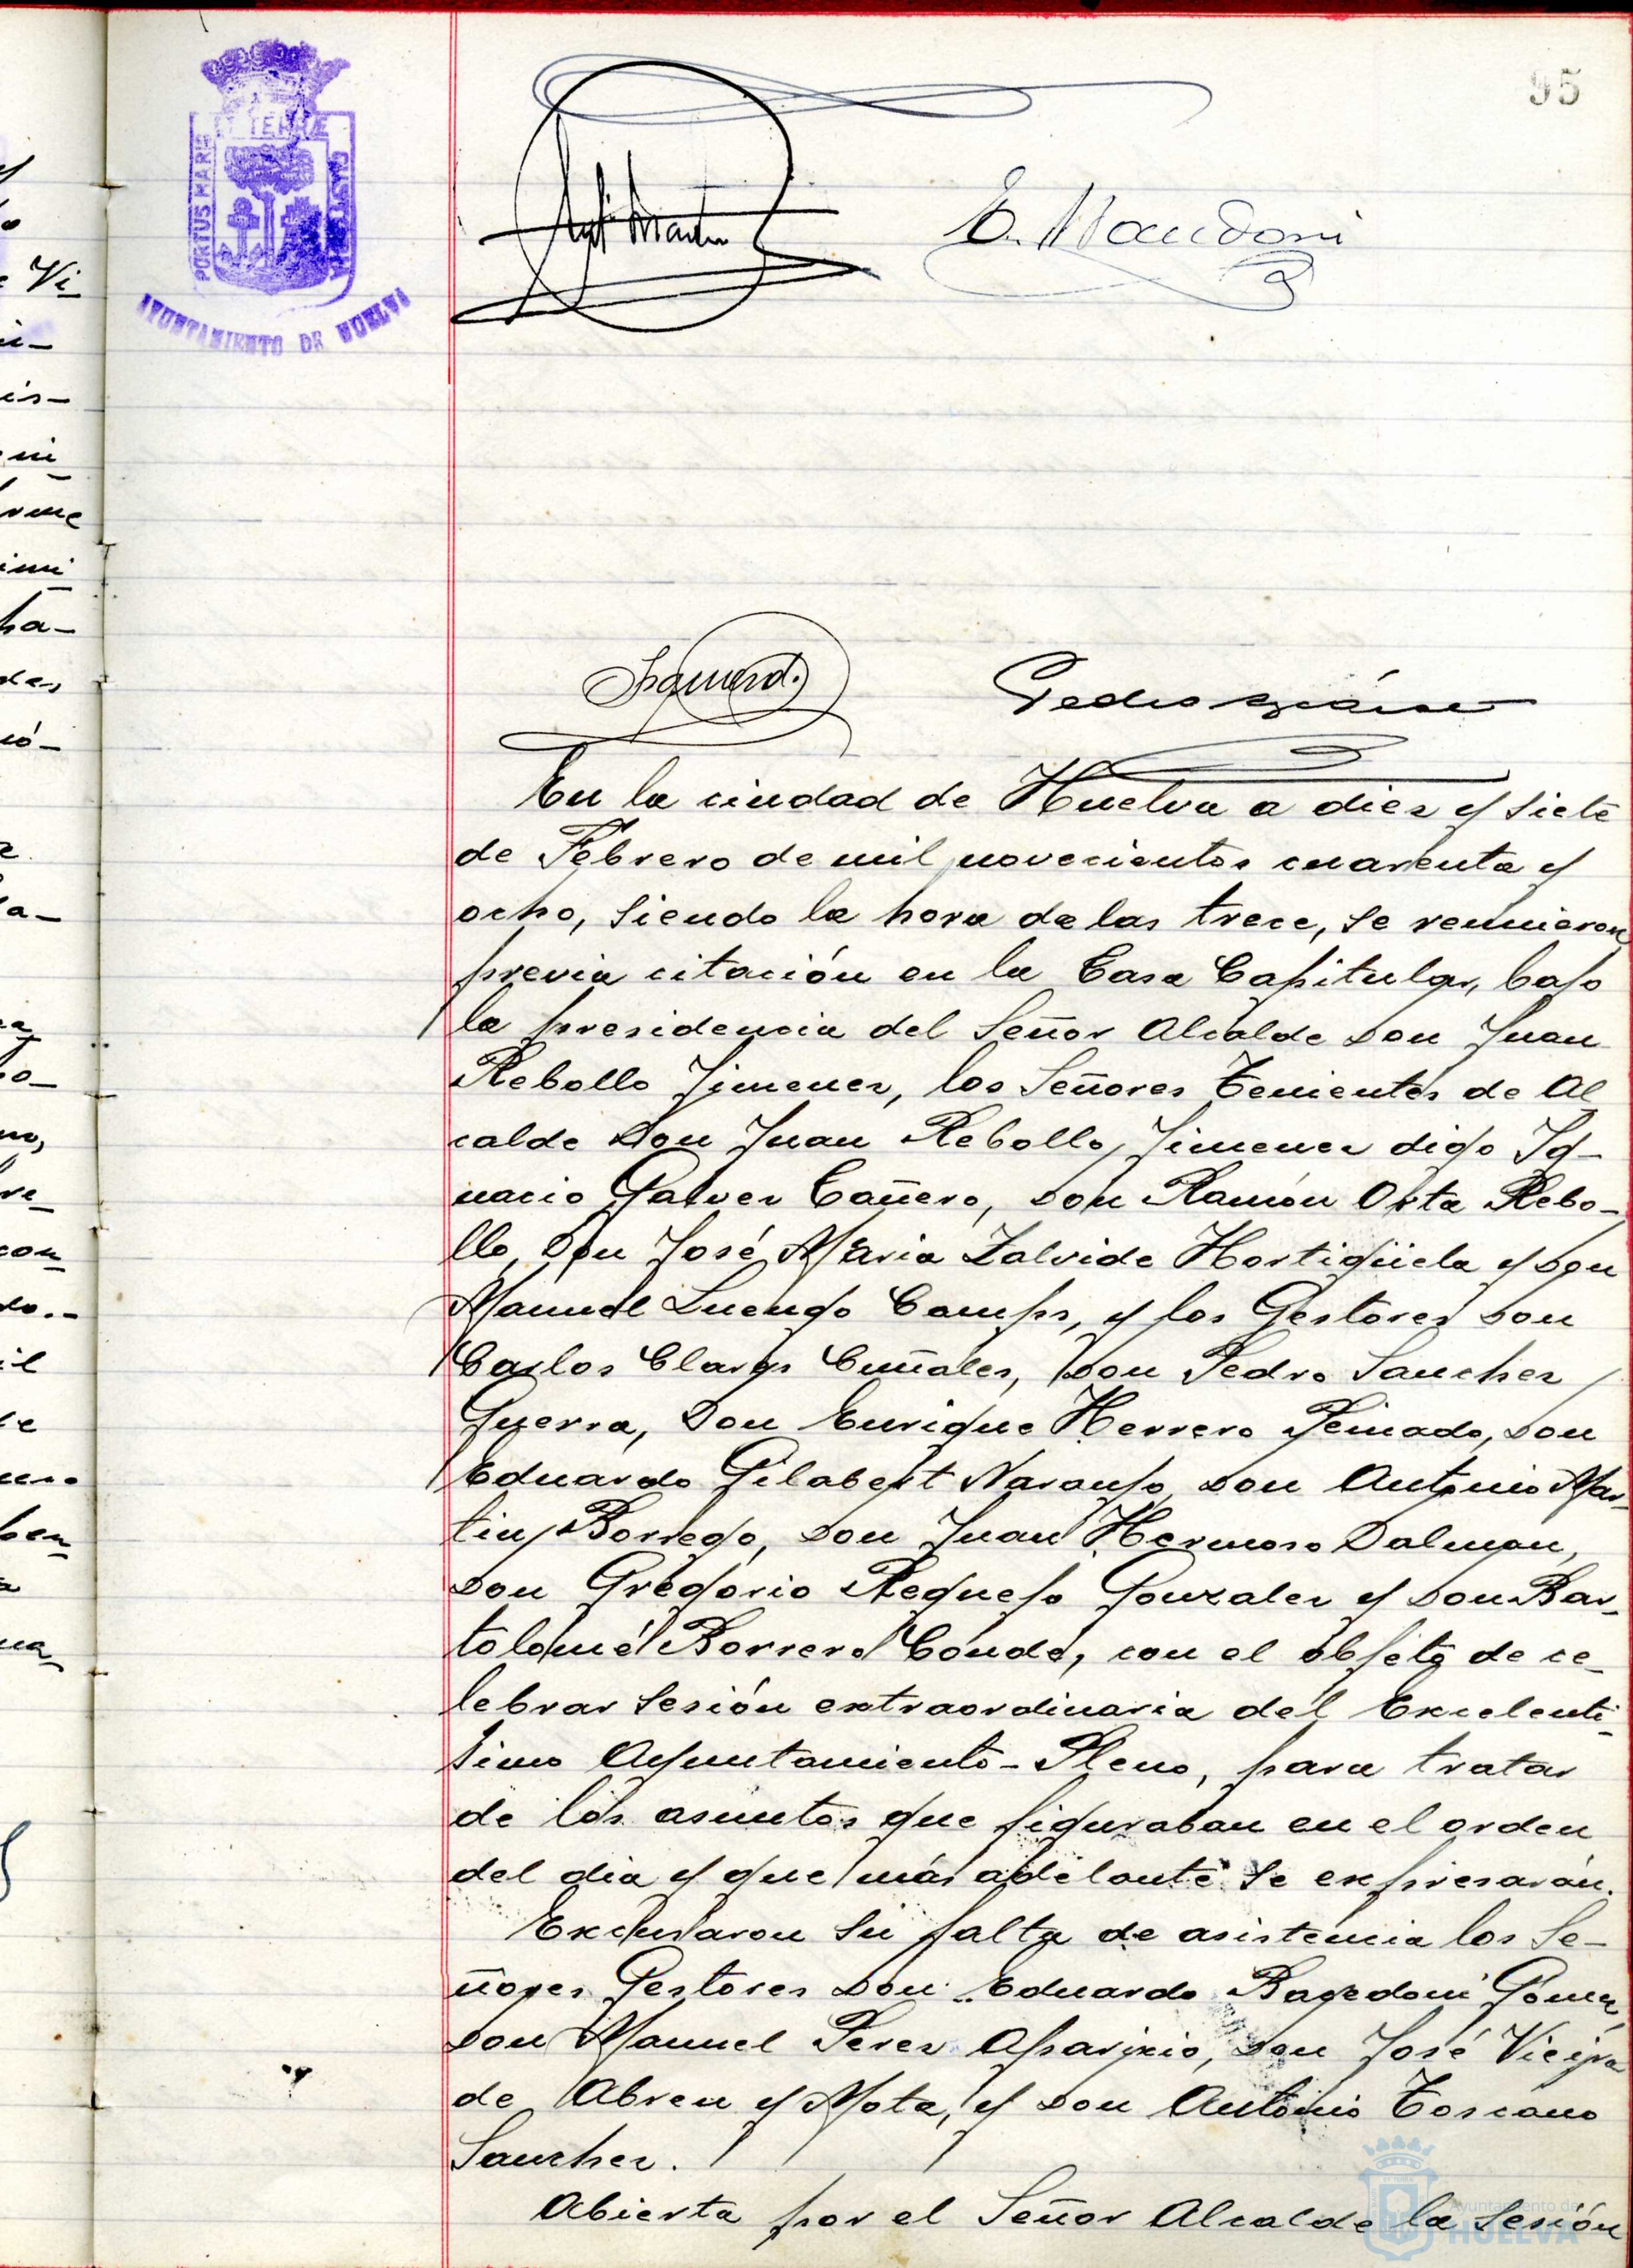 95
PORTUS MARIS
ET TERRÆ
CUSTODIA
AYUNTAMIENTO DE HUELVA
Izquierd.
Pedro
En la ciudad de Huelva a diez y siete
de Febrero de mil novecientos cuarenta y
ocho, siendo la hora de las trece, se reunieron
previa citación en la Casa Capitular, bajo
la presidencia del Señor Alcalde Don Juan
Rebollo Jimenez, los Señores Tenientes de Al
calde Don Juan Rebollo Jimenez digo Ig-
nacio Galvez Cañero, Don Ramón Orta Rebo-
llo, Don José Maria Zalvide Hortigüela y Don
Manuel Luengo Camps, y los Gestores Don
Carlos Claros Cuñales, Don Pedro Sanchez
Guerra, Don Enrique Herrero Peinado, Don
Eduardo Gilabert Naranjo, Don Antonio Mar-
tin Borrego, Don Juan Hermoso Dalmau,
Don Gregorio Requejo Gonzalez y Don Bar-
tolomé Borrero Conde, con el objeto de ce-
lebrar sesión extraordinaria del Excelentí-
simo Ayuntamiento-Pleno, para tratar
de los asuntos que figuraban en el orden
del dia y que más adelante se expresarán.
Excusaron su falta de asistencia los Se-
ñores Gestores Don Eduardo Gomez,
Don Manuel Perez Aparicio, Don José Vieira
de Abreu y Mota, y Don Antonio Toscano
Sanchez.
Abierta por el Señor Alcalde la sesión
Ayuntamiento de
HUELVA